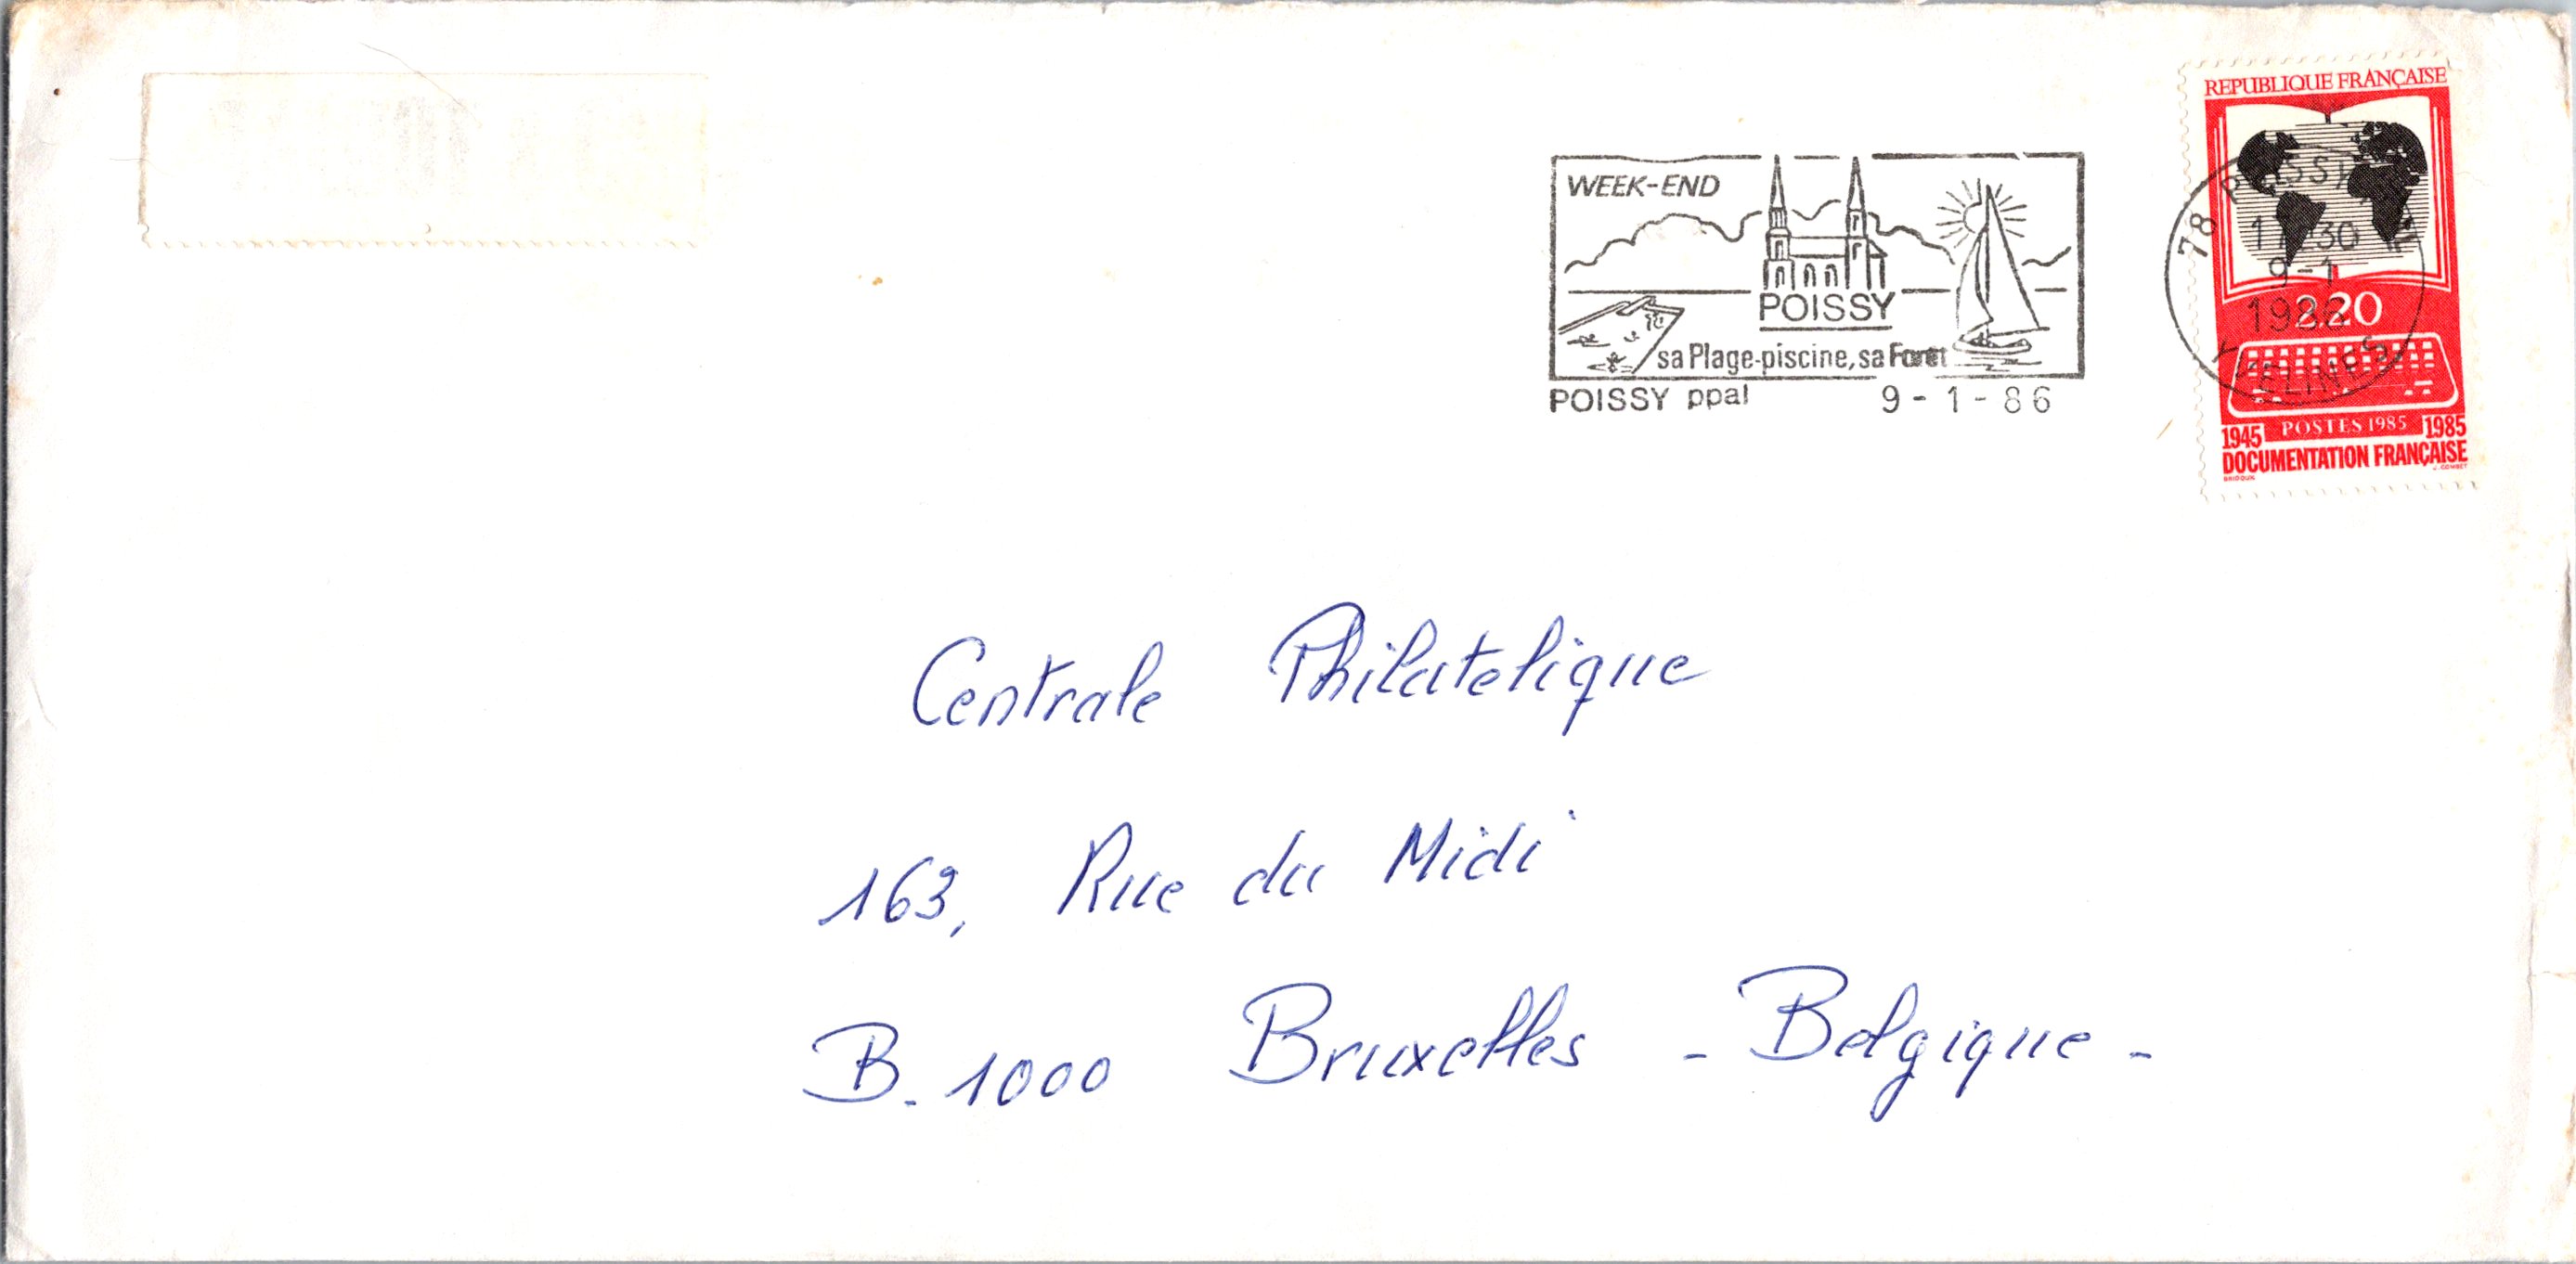 REPUBLIQUE FRANÇAISE
WEEK-END
POISSY
sa Plage-piscine, sa Forêt
POISSY ppal 9 - 1 - 86
78 POISSY
17 30
9 - 1
1986
YVELINES
2.20
POSTES 1985
1945 1985
DOCUMENTATION FRANÇAISE
BRIDOUX J. COMBET
Centrale Philatelique
163, Rue du Midi
B. 1000 Bruxelles - Belgique -